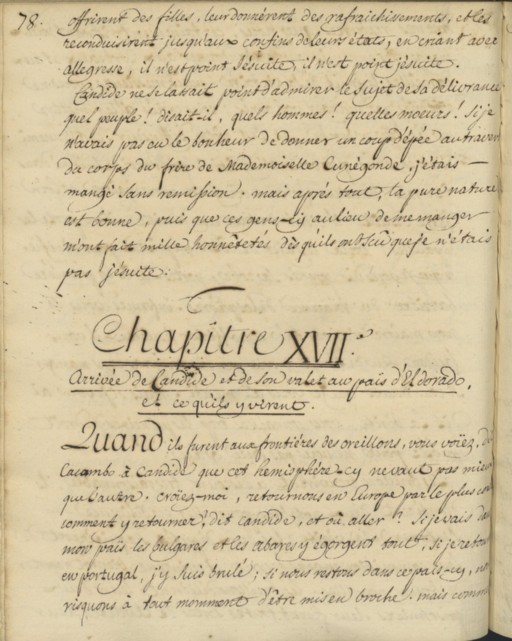 78.
offrirent des filles, leur donnèrent des rafraichissements, et les
reconduisirent jusqu'aux confins de leurs états, en criant avec
allegresse, il n'est point Jésuite, il n'est point jésuite.
Candide ne se lassait point d'admirer le sujet de sa délivrance
quel peuple! disait-il, quels hommes! quelles moeurs! Si je
n'avais pas eu le bonheur de donner un coup d'épée au traver
du corps du frère de Mademoiselle Cunégonde, j'étais —
mangé sans remission. mais aprés tout, la pure nature
est bonne, puis que ces gens-cy au lieu de me manger
m'ont fait mille honnêtetés dès qu'ils ont scu que je n'étais
pas jésuite.
Chapitre XVII.e
Arrivée de Candide et de son valet au païs d'Eldorado,
et ce qu'ils y virent.
Quand ils furent aux frontiéres des oreillons, vous voïez, dit
Cacambo à Candide que cet hemisphére-cy ne vaut pas mieu
que l'autre. croiez-moi, retournons en Europe par le plus cou
comment y retourner, dit candide, et où aller? Si je vais da
mon païs les bulgares et les abares y égorgent tout, si je retou
en portugal, j'y suis brulé; si nous restons dans ce païs-cy, no
risquons à tout momment d'être mis en broche. mais comm